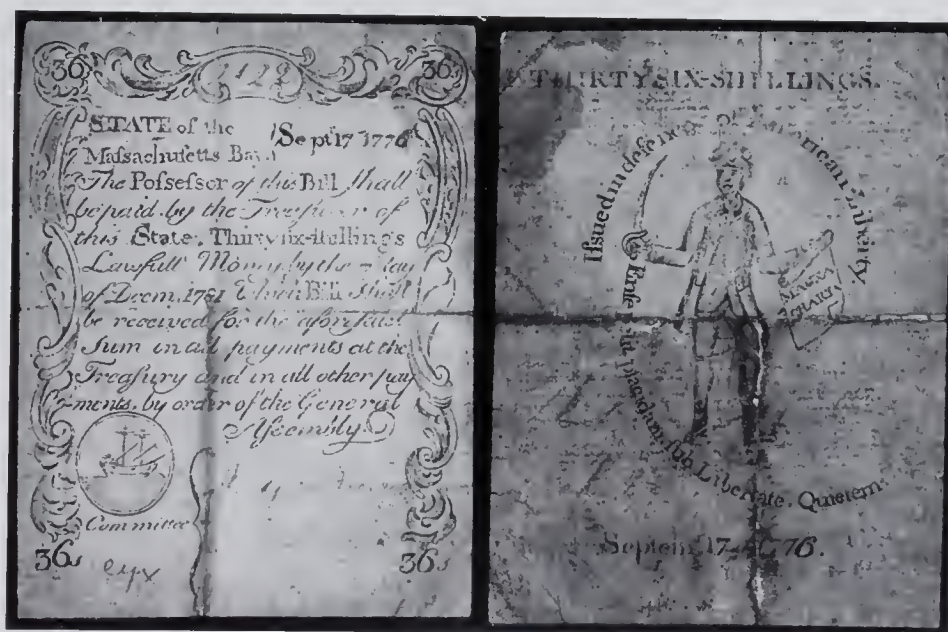 36s 36s
STATE of the Sept 17 1776
Maſsachuſetts Bay
The Poſseſsor of this Bill ſhall
be paid by the Treaſurer of
this State, Thirty ſix-ſhillings
Lawfull Money by the day
of Decm. 1781 Which Bill ſhall
be received for the aforeſaid
Sum in all payments at the
Treaſury and in all other pay
ments, by order of the General
Aſsembly
Committee
36s 36s
THIRTY SIX-SHILLINGS.
Iſsued in defence of American Liberty
Enſe petit placidam, ſub Libertate, Quietem
MAGNA
CHARTA
Septem. 17. 1776.